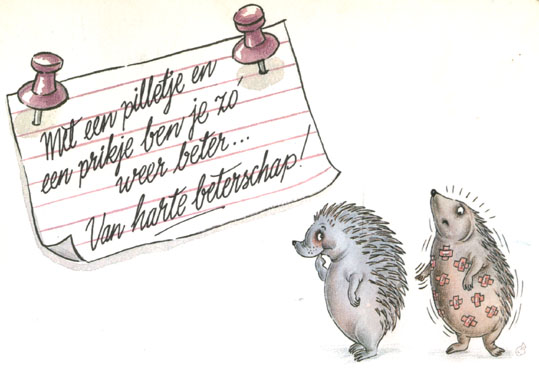 Met een pilletje en
een prikje ben je zó
weer beter...
Van harte beterschap!